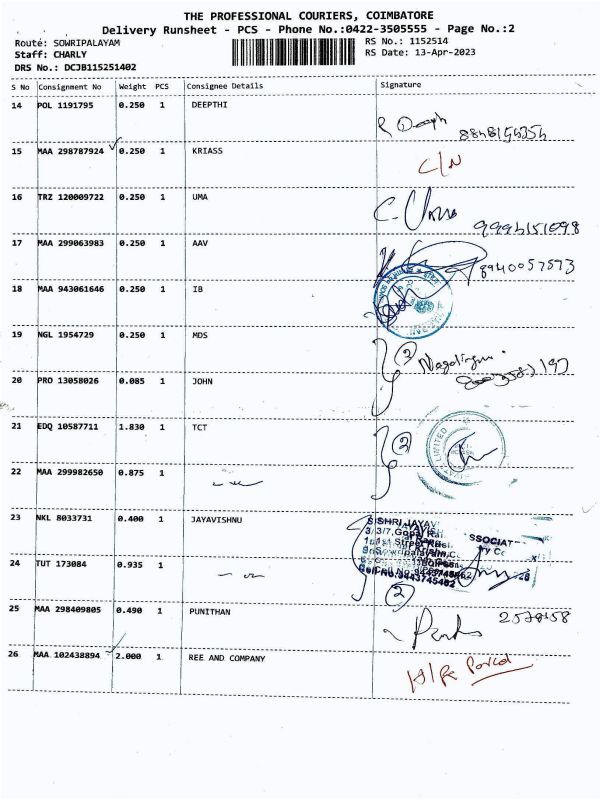 THE PROFESSIONAL COURIERS, COIMBATORE
Delivery Runsheet - PCS - Phone No.:0422-3505555 - Page No.:2
Route: SOWRIPALAYAM RS No.: 1152514
Staff: CHARLY RS Date: 13-Apr-2023
DRS No.: DCJB115251402
S No Consignment No Weight PCS Consignee Details Signature
14 POL 1191795 0.250 1 DEEPTHI
15 MAA 298787924 0.250 1 KRIASS
C/N
16 TRZ 120009722 0.250 1 UMA
C. Uma
17 MAA 299063983 0.250 1 AAV
8940057573
18 MAA 943061646 0.250 1 IB
19 NGL 1954729 0.250 1 MDS
2
20 PRO 13058026 0.085 1 JOHN
21 EDQ 10587711 1.830 1 TCT
2
LIMITED
22 MAA 299982650 0.875 1
23 NKL 8033731 0.400 1 JAYAVISHNU
S.SHRI JAYAV
SSOCIAT
24 TUT 173084 0.935 1
Cell No:9443745462
2
25 MAA 298409805 0.490 1 PUNITHAN
26 MAA 102438894 2.000 1 REE AND COMPANY